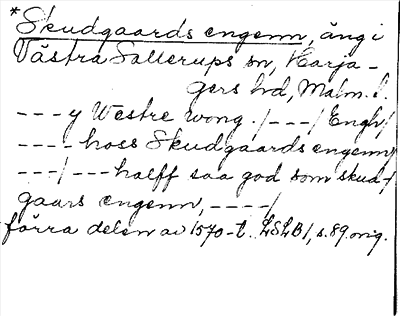 *Skudgaards engenn, äng i
Västra Sallerups sn, Harja-
gers hd, Malm. l.
---y Westre wong./---/Engh/
----hoss Skudgaards engenn/
---/---halff saa god som skud-/
gaars engenn,----/
förra delen av 1570-t. LSLB1, s.89 orig.